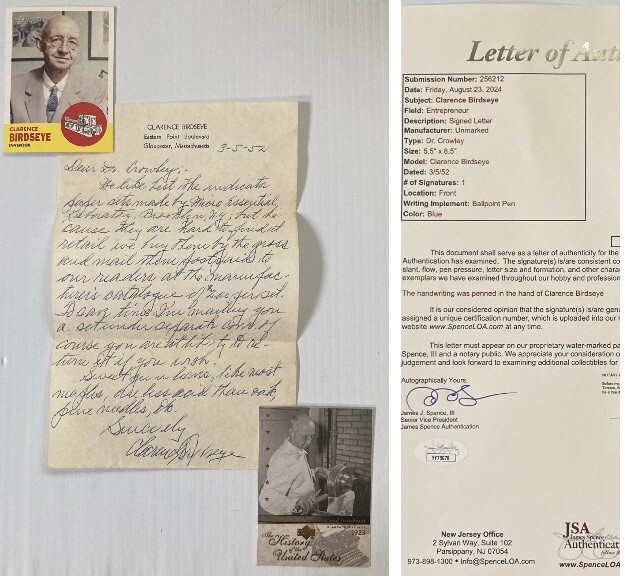 CLARENCE
BIRDSEYE
INVENTOR
CLARENCE BIRDSEYE
Eastern Point Boulevard
Gloucester, Massachusetts
3-5-52
Dear Dr. Crowley:-
We like best the indicator
paper sets made by Micro Essential
Laboratory, Brooklyn, N.Y.; but be
cause they are hard to find at
retail we buy them by the gross
and mail them postpaid to
our readers at the manufac-
turer's catalogue of
To save time I'm mailing you
a set under separate cover. Of
course you are at liberty to re-
turn it if you wish.
Sweet gum leaves, like most
maples, are less acid than oak,
pine needles, etc.
Sincerely
Clarence Birdseye
1923
The
History
of the
United States
Letter of Aut
Submission Number: 256212
Date: Friday, August 23, 2024
Subject: Clarence Birdseye
Field: Entrepreneur
Description: Signed Letter
Manufacturer: Unmarked
Type: Dr. Crowley
Size: 5.5" x 8.5"
Model: Clarence Birdseye
Dated: 3/5/52
# of Signatures: 1
Location: Front
Writing Implement: Ballpoint Pen
Color: Blue
This document shall serve as a letter of authenticity for the
Authentication has examined. The signature(s) is/are consistent co
slant, flow, pen pressure, letter size and formation, and other charac
exemplars we have examined throughout our hobby and profession
The handwriting was penned in the hand of Clarence Birdseye
It is our considered opinion that the signature(s) is/are genu
assigned a unique certification number, which is uploaded into our
website www.SpenceLOA.com at any time.
This letter must appear on our proprietary water-marked pa
Spence, III and a notary public. We appreciate your consideration o
judgement and look forward to examining additional collectibles for
Autographically Yours,
James J. Spence, III
Senior Vice President
James Spence Authentication
NOTARY
YY78078
New Jersey Office
2 Sylvan Way, Suite 102
Parsippany, NJ 07054
973-898-1300 • Info@SpenceLOA.com
JSA
James Spence
Authenticat
www.SpenceLOA